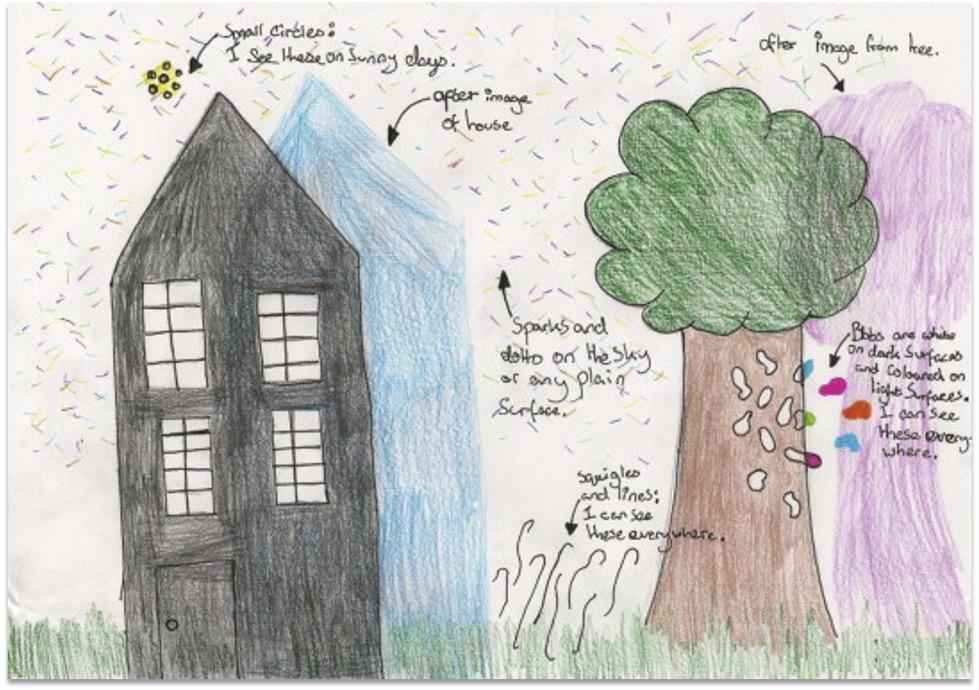 Small circles:
I see these on sunny days.
after image
of house
after image from tree.
Sparks and
dotts on the sky
or any plain
surface.
Blobs are white
on dark surfaces
and coloured on
light surfaces.
I can see
these every
where.
squigles
and lines:
I can see
these everywhere.